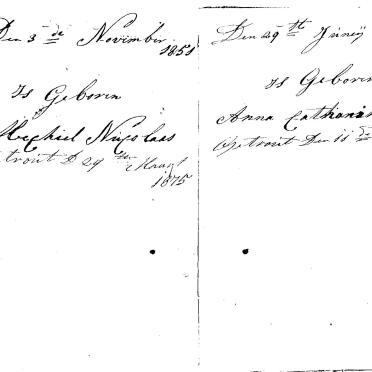 Den 3de November
1851
Is Geboren
Michiel Nicolaas
Getrout D 29ten Maart
1875
Den 29th Juneij
Is Geboren
Anna Catharin
Getrout Den 11de